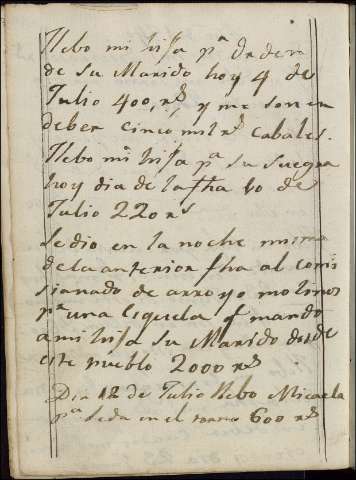 Llebo mi hija pa. orden
de su Marido hoy 4 de
Julio 400, rs, y me son en
deber cinco mil rs cabales.
Llebo mi hija pa. su suegra
hoy dia de la fha 10 de
Julio 220 rs
Se dio en la noche misma
de la anterior fha al comi
sionado de arroyo molinos
pr una Esquela q mando
a mi hija su Marido desde
este pueblo 2000 rs
Dia 12 de Julio llebo Micaela
pa. Seda en el torno 600 rs